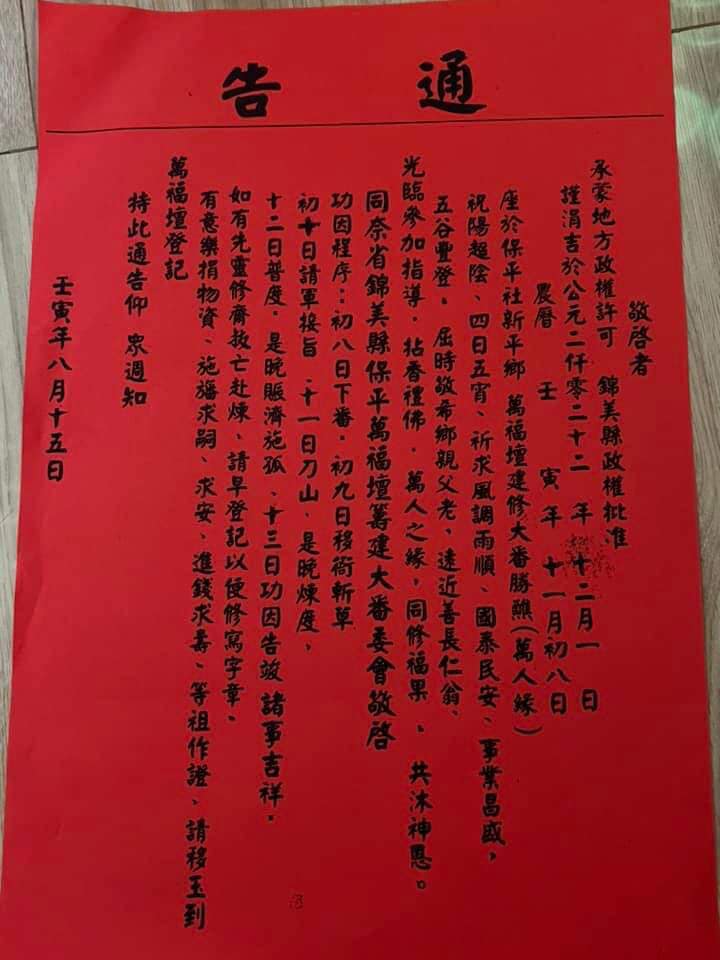 通告
敬啓者
承蒙地方政權許可 錦美縣政權批准
謹涓吉於公元二仟零二十二年十二月一日
農曆 壬寅年十一月初八日
座於保平社新平鄉 萬福壇建修大番勝醮(萬人緣)
祝陽超陰、四日五宵、祈求風調雨順、國泰民安、事業昌盛，
五谷豐登。 屆時敬希鄉親父老、遠近善長仁翁、
光臨參加指導，拈香禮佛，萬人之緣，同修福果。 共沐神恩。
同奈省錦美縣保平萬福壇籌建大番委會敬啓
功因程序：初八日下番．初九日移衙斬草
初十日請軍接旨 十一日刀山、是晚煉度，
十二日普度。是晚賑濟施孤、十三日功因告竣諸事吉祥。
如有先靈修齋救亡赴煉、請早登記以便修寫字章。
有意樂捐物資、施旛求嗣、求安、進錢求壽、等祖作證、請移玉到
萬福壇登記
特此通告仰 衆週知
壬寅年八月十五日